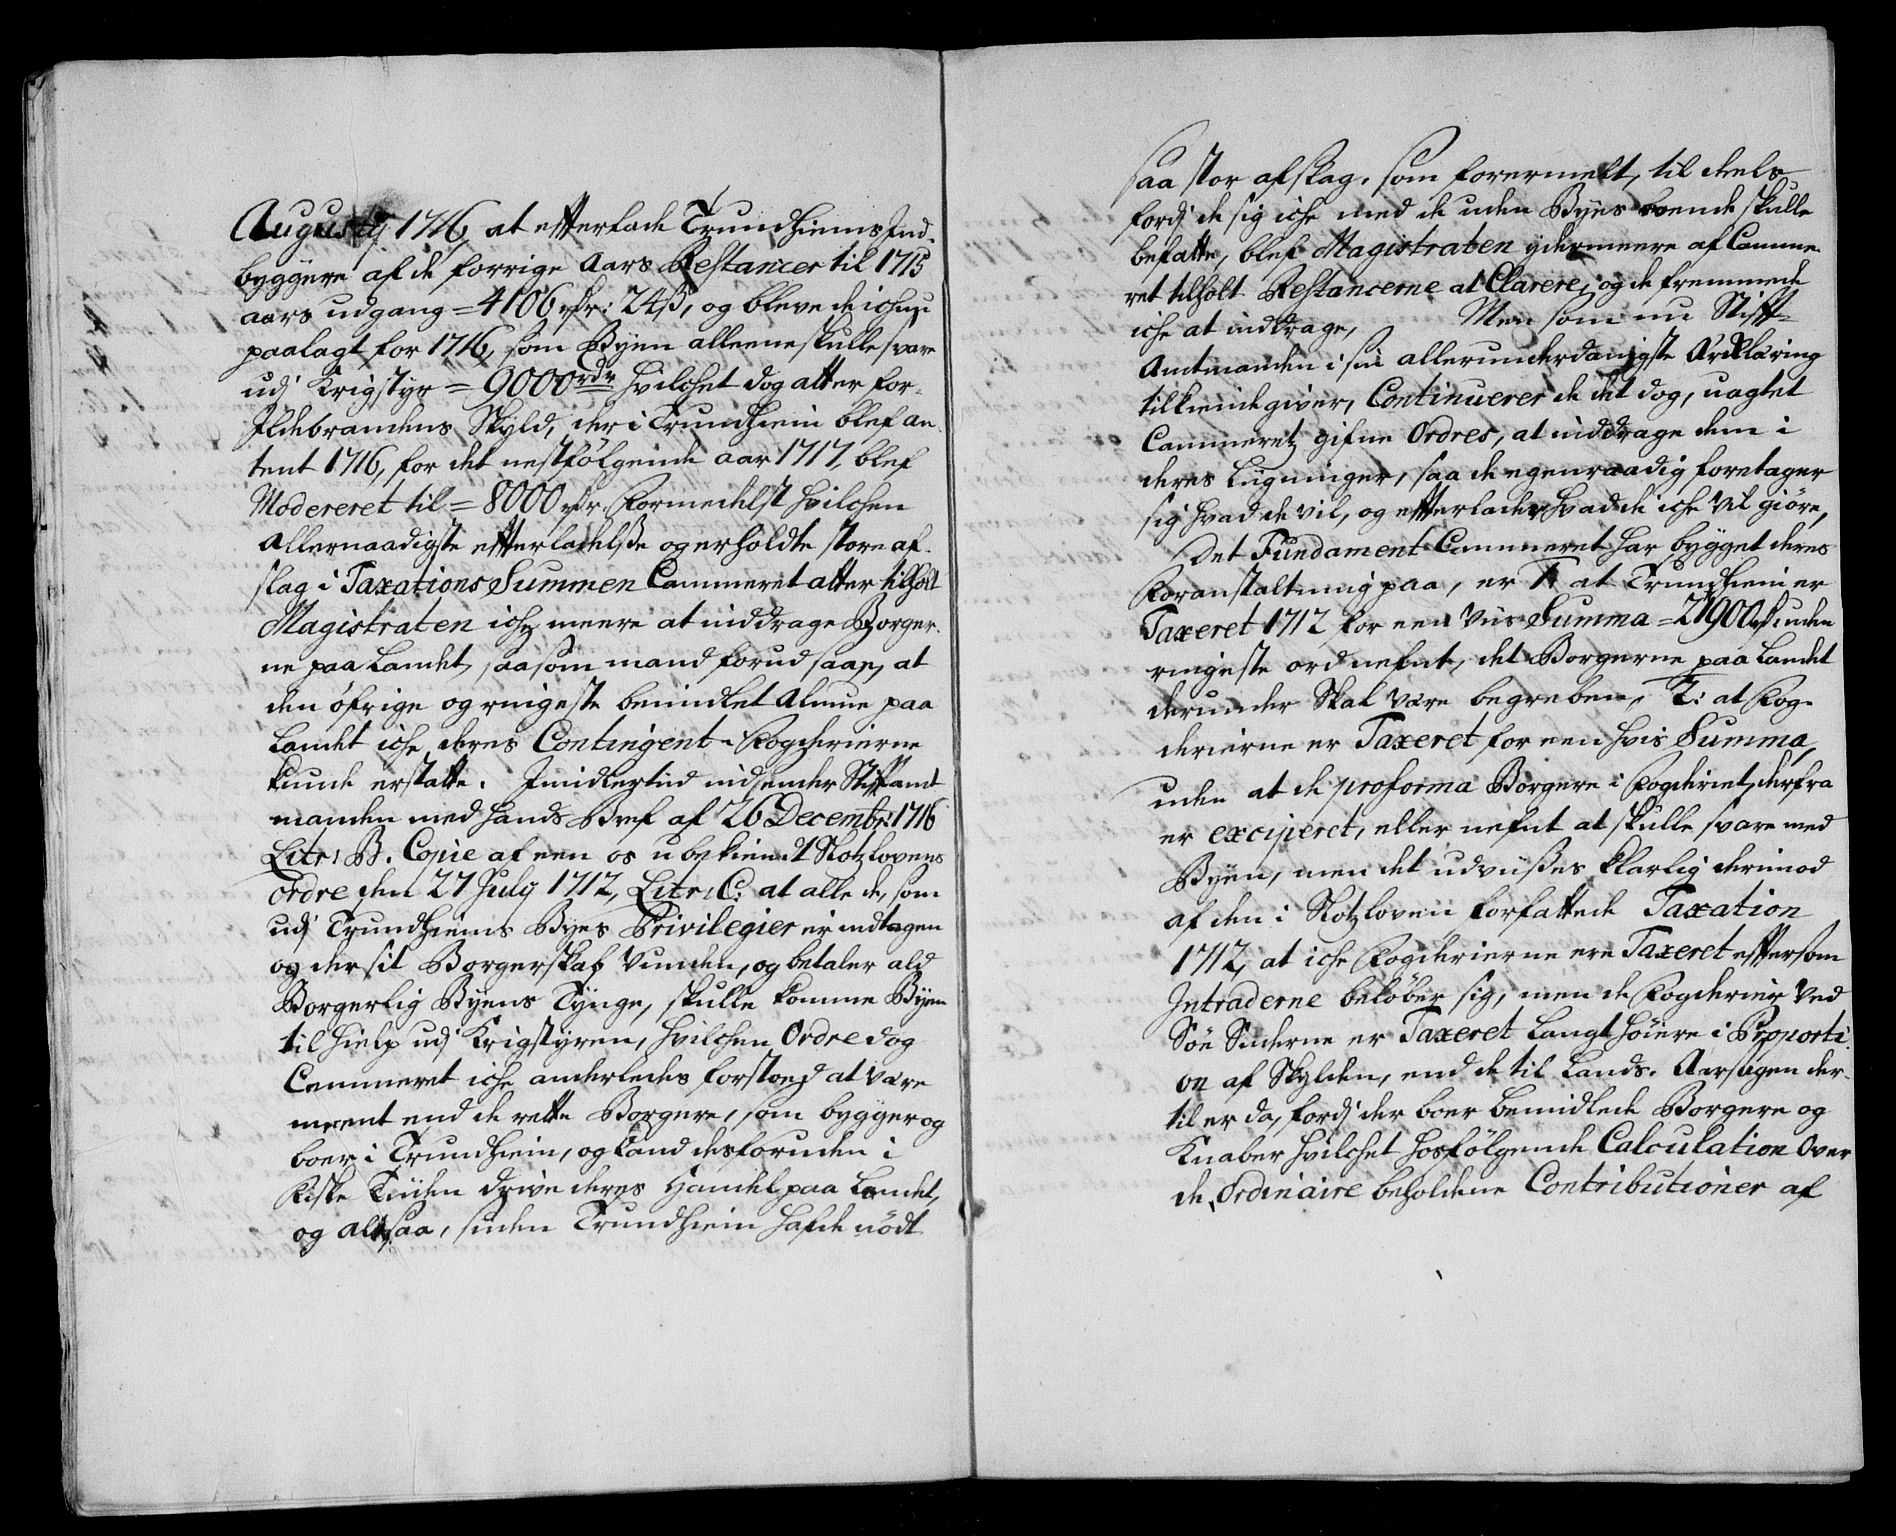 Augusty 1716, at efterlade Trundhiems Ind-
byggere af de forrige Aars Restancer til 1715
aars udgang = 4106 rdr: 24 ß, og bleve de ichun
paalagt for 1716, som Byen alleene skulle svare
udj Krigstyr = 9000 rdr hvilchet dog atter for
Ildebrandens Skyld, der i Trundhiem blef an-
tent 1716, for det nestfølgende aar 1717, blef
Modereret til = 8000 rdr. Formedelst hvilchen
allernaadigste efterladelße og erholdte store af-
slag i Taxations Summen Cammeret atter tilholt
Magistraten iche meere at inddrage Borger-
ne paa Landet, saasom mand forud saae, at
den öfrige og ringeste bemidlet Almue paa
Landet iche deres Contingent Fogderierne
kunde erstatte. Imidlertid indsender Stiftamt
manden med hands Bref af 26 Decembr: 1716
Litr: B. Copie af een os ubekiendt Slotzlovens
Ordre den 27 July 1712, Litr: C: at alle de, som
udj Trundhiems Byes Privilegier er indtagen
og der sit Borgerskab vunden, og betaler ald
Borgerlig Byens Tynge, skulle komme Byen
til hielp udj Krigstyren, hvilchen Ordre dog
Cammeret iche anderledes forstoed at være
meent end de rette Borgere, som bygger og
boer i Trundhiem, og kand desforuden i
Fiske Tiiden drive deres Handel paa Landet,
og altsaa, siden Trundhiem hafde nödt
saa stor afslag, som formelt, til deels
fordj de sig iche med de uden Byes boende skulle
befatte, blef Magistraten ydermeere af Camme-
ret tilholt Restancerne at Clarere, og de fremmede
iche at inddrage, Men som nu Stift-
Amtmanden i sin allerunderdanigste Ærdklæring
tilkiendegiver, Continuerer de det dog, uagtet
Cammeretz gifne Ordres, at inddrage dem i
deres Ligninger, saa de egenraadig foretager
sig hvad de vil, og efterlader hvad de iche vil giöre,
Det Fundament Cammeret har bygget deres
Foranstaltning paa, er 1: at Trundhiem er
Taxeret 1712 for een viis Summa = 21900 rdr uden
ringeste ord nefnt, det Borgerne paa Landet
derunder Skal være begreben, 2: at Fog-
derierne er Taxeret for een hvis Summa,
uden at de proforma Borgere i Fogderiet, derfra
er exciperet, eller nefnt at skulle svare med
Byen, men det udviißes klarlig derimod
af den i Slotzloven forfattede Taxation
1712, at iche Fogderierne ere Taxeret effter som
Intraderne belöber sig, men de Fogderier ved
Söe Siderne er Taxeret Langt höiere i Proporti-
on af Skylden, end de til Lands. Aarsagen der-
til er da, fordj der boer bemidlede Borgere og
Knaber hvilchet hosfölgende Calculation Over
de Ordinaire beholdene Contributioner af